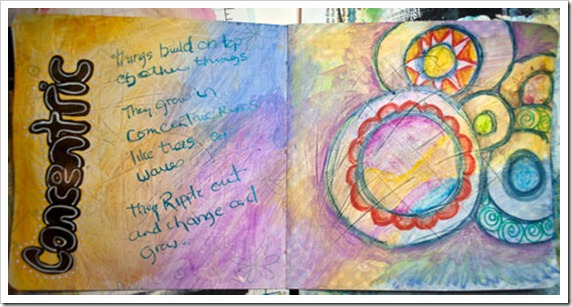 Consentric
Things build on top
of other things
They grow in
Concentric Rings
like trees or
waves
they Ripple out
and change and
grow..